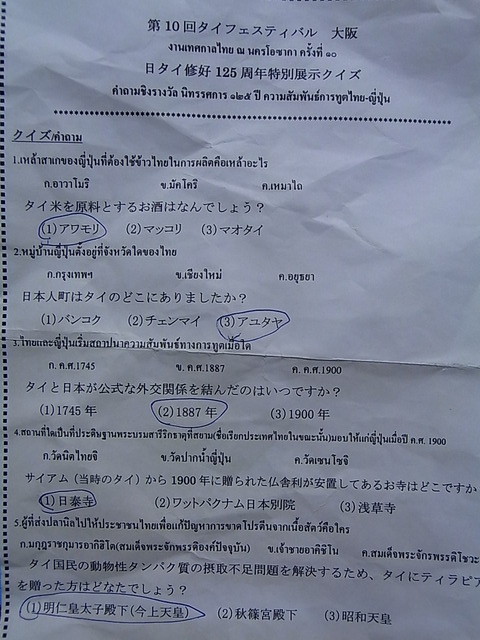 第10回タイフェスティバル 大阪
งานเทศกาลไทย ณ นครโอซากา ครั้งที่ ๑๐
日タイ修好125周年特別展示クイズ
คำถามชิงรางวัล นิทรรศการ ๑๒๕ ปี ความสัมพันธ์การทูตไทย-ญี่ปุ่น
クイズ/คำถาม
1.เหล้าสาเกของญี่ปุ่นที่ต้องใช้ข้าวไทยในการผลิตคือเหล้าอะไร
ก.อาวาโมริ ข.มัคโคริ ค.เหมาไถ
タイ米を原料とするお酒はなんでしょう？
(1)アワモリ (2)マッコリ (3)マオタイ
2.หมู่บ้านญี่ปุ่นตั้งอยู่ที่จังหวัดใดของไทย
ก.กรุงเทพฯ ข.เชียงใหม่ ค.อยุธยา
日本人町はタイのどこにありましたか？
(1)バンコク (2)チェンマイ (3)アユタヤ
3.ไทยและญี่ปุ่นเริ่มสถาปนาความสัมพันธ์ทางการทูตเมื่อใด
ก. ค.ศ.1745 ข. ค.ศ.1887 ค. ค.ศ.1900
タイと日本が公式な外交関係を結んだのはいつですか？
(1)1745年 (2)1887年 (3)1900年
4.สถานที่ใดเป็นที่ประดิษฐานพระบรมสารีริกธาตุที่สยาม(ชื่อเรียกประเทศไทยในขณะนั้น)มอบให้แก่ญี่ปุ่นเมื่อปี ค.ศ. 1900
ก.วัดนิตไทยจิ ข.วัดปากน้ำญี่ปุ่น ค.วัดเซนโซจิ
サイアム（当時のタイ）から1900年に贈られた仏舎利が安置してあるお寺はどこですか
(1)日泰寺 (2)ワットパクナム日本別院 (3)浅草寺
5.ผู้ที่ส่งปลานิลไปให้ประชาชนไทยเพื่อแก้ปัญหาการขาดโปรตีนจากเนื้อสัตว์คือใคร
ก.มกุฎราชกุมารอากิฮิโต(สมเด็จพระจักรพรรดิองค์ปัจจุบัน) ข.เจ้าชายอากิชิโน ค.สมเด็จพระจักรพรรดิโชวะ
タイ国民の動物性タンパク質の摂取不足問題を解決するため、タイにティラピア
を贈った方はどなたでしょう？
(1)明仁皇太子殿下(今上天皇) (2)秋篠宮殿下 (3)昭和天皇